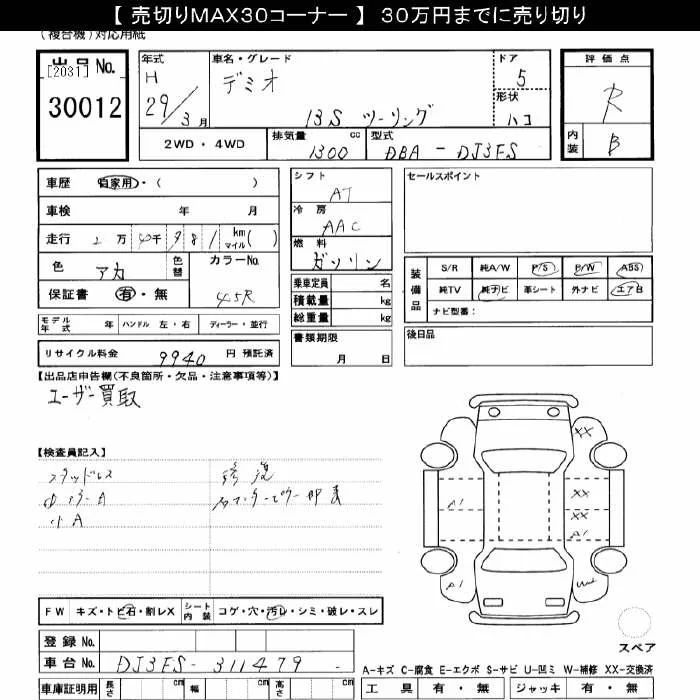 【 売切りMAX30コーナー 】 30万円までに売り切り
(複合機)対応用紙
出品 No.
[2031]
30012
年式
H
29/3月
車名・グレード
デミオ
13S ツーリング
ドア
5
形状
ハコ
評価点
R
内装
B
2WD・4WD
排気量
1300 cc
型式
DBA - DJ3FS
車歴 自家用・( )
車検 年 月
走行 2万 4千 981 km マイル( )
色 アカ
色替
カラーNo.
45R
保証書 有・無
モデル年式 年 ハンドル 左・右 ディーラー・並行
リサイクル料金 9940 円 預託済
シフト
AT
冷房
AAC
燃料
ガソリン
乗車定員 名
積載量 kg
総重量 kg
書類期限
月 日
セールスポイント
装備品
S/R 純A/W P/S P/W ABS
純TV 純ナビ 革シート 外ナビ エアB
ナビ型番：
後日品
【出品店申告欄(不良箇所・欠品・注意事項等)】
ユーザー買取
【検査員記入】
スタッドレス
小 A
修復
XX
XX
XX
A1
A1
A1
A1
FW キズ・トビ石・割レX
シート内装 コゲ・穴・汚レ・シミ・破レ・スレ
登録 No.
車台 No. DJ3FS - 311479
車庫証明用 長さ cm 幅 cm 高さ cm
スペア
A-キズ C-腐食 E-エクボ S-サビ U-凹ミ W-補修 XX-交換済
工具 有・無 ジャッキ 有・無